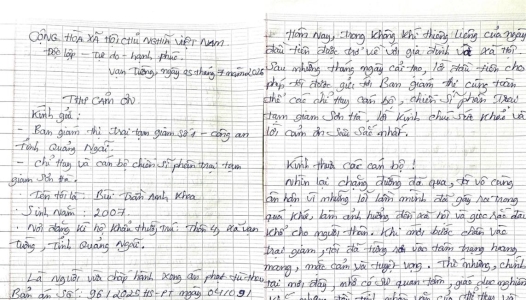 CỘNG HÒA XÃ HỘI CHỦ NGHĨA VIỆT NAM
Độc lập - Tự do - hạnh phúc.
Vạn Tường, ngày 05 tháng 7 năm 2026
THƯ CẢM ƠN
Kính gửi:
- Ban giám thị Trại tạm giam số 1 - công an
Tỉnh Quảng Ngãi.
- chỉ huy và cán bộ chiến sĩ phân trại tạm
giam Sơn Hà.
Tên tôi là: Bùi Trần Anh Khoa
Sinh Năm: 2007.
Nơi đăng kí hộ khẩu thường trú: Thôn xã Vạn
Tường, Tỉnh Quảng Ngãi.
Là Người vừa chấp hành xong án phạt tù theo
Bản án Số: 96/2025/HS-PT ngày
Hôm nay, trong không khí thiêng liêng của ngày
đầu tiên được trở về với gia đình và xã hội.
Sau những tháng ngày cải tạo, lời đầu tiên cho
phép tôi được gửi tới Ban giám thị cùng toàn
thể các chỉ huy cán bộ, chiến sĩ phân Trại
tạm giam Sơn Hà, lời kính chúc Sức khỏe và
lời cảm ơn Sâu Sắc nhất.
Kính thưa các cán bộ!
Nhìn lại chặng đường đã qua, tôi vô cùng
ân hận vì những lỗi lầm mình đã gây ra trong
quá khứ, làm ảnh hưởng đến xã hội và đau
khổ cho người thân. Khi mới bước chân vào
trại giam, tôi đã từng rơi vào tâm trạng hoang
mang, mặc cảm và tuyệt vọng. Thế nhưng, chính
tại nơi đây, nhờ có sự quan tâm, giáo dục nghiêm